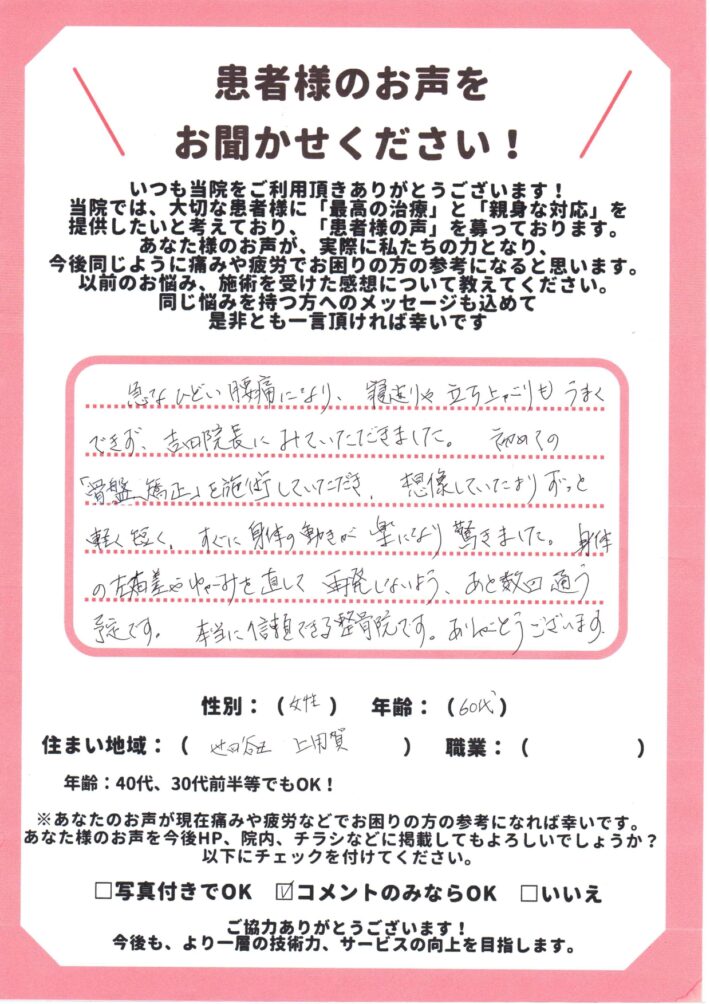 患者様のお声を
お聞かせください！
いつも当院をご利用頂きありがとうございます！
当院では、大切な患者様に「最高の治療」と「親身な対応」を
提供したいと考えており、「患者様の声」を募っております。
あなた様のお声が、実際に私たちの力となり、
今後同じように痛みや疲労でお困りの方の参考になると思います。
以前のお悩み、施術を受けた感想について教えてください。
同じ悩みを持つ方へのメッセージも込めて
是非とも一言頂ければ幸いです
急なひどい腰痛になり、寝返りや立ち上がりもうまく
できず、吉田院長にみていただきました。 初めての
「骨盤矯正」を施術していただき、想像していたよりずっと
軽く短く、すぐに身体の動きが楽になり驚きました。身体
の左右差やゆがみを直して再発しないよう、あと数回通う
予定です。 本当に信頼できる整骨院です。ありがとうございます。
性別：（女性） 年齢：（60代）
住まい地域：（ 世田谷区 上用賀 ） 職業：（ ）
年齢：40代、30代前半等でもOK！
※あなたのお声が現在痛みや疲労などでお困りの方の参考になれば幸いです。
あなた様のお声を今後HP、院内、チラシなどに掲載してもよろしいでしょうか？
以下にチェックを付けてください。
□写真付きでOK ☑コメントのみならOK □いいえ
ご協力ありがとうございます！
今後も、より一層の技術力、サービスの向上を目指します。